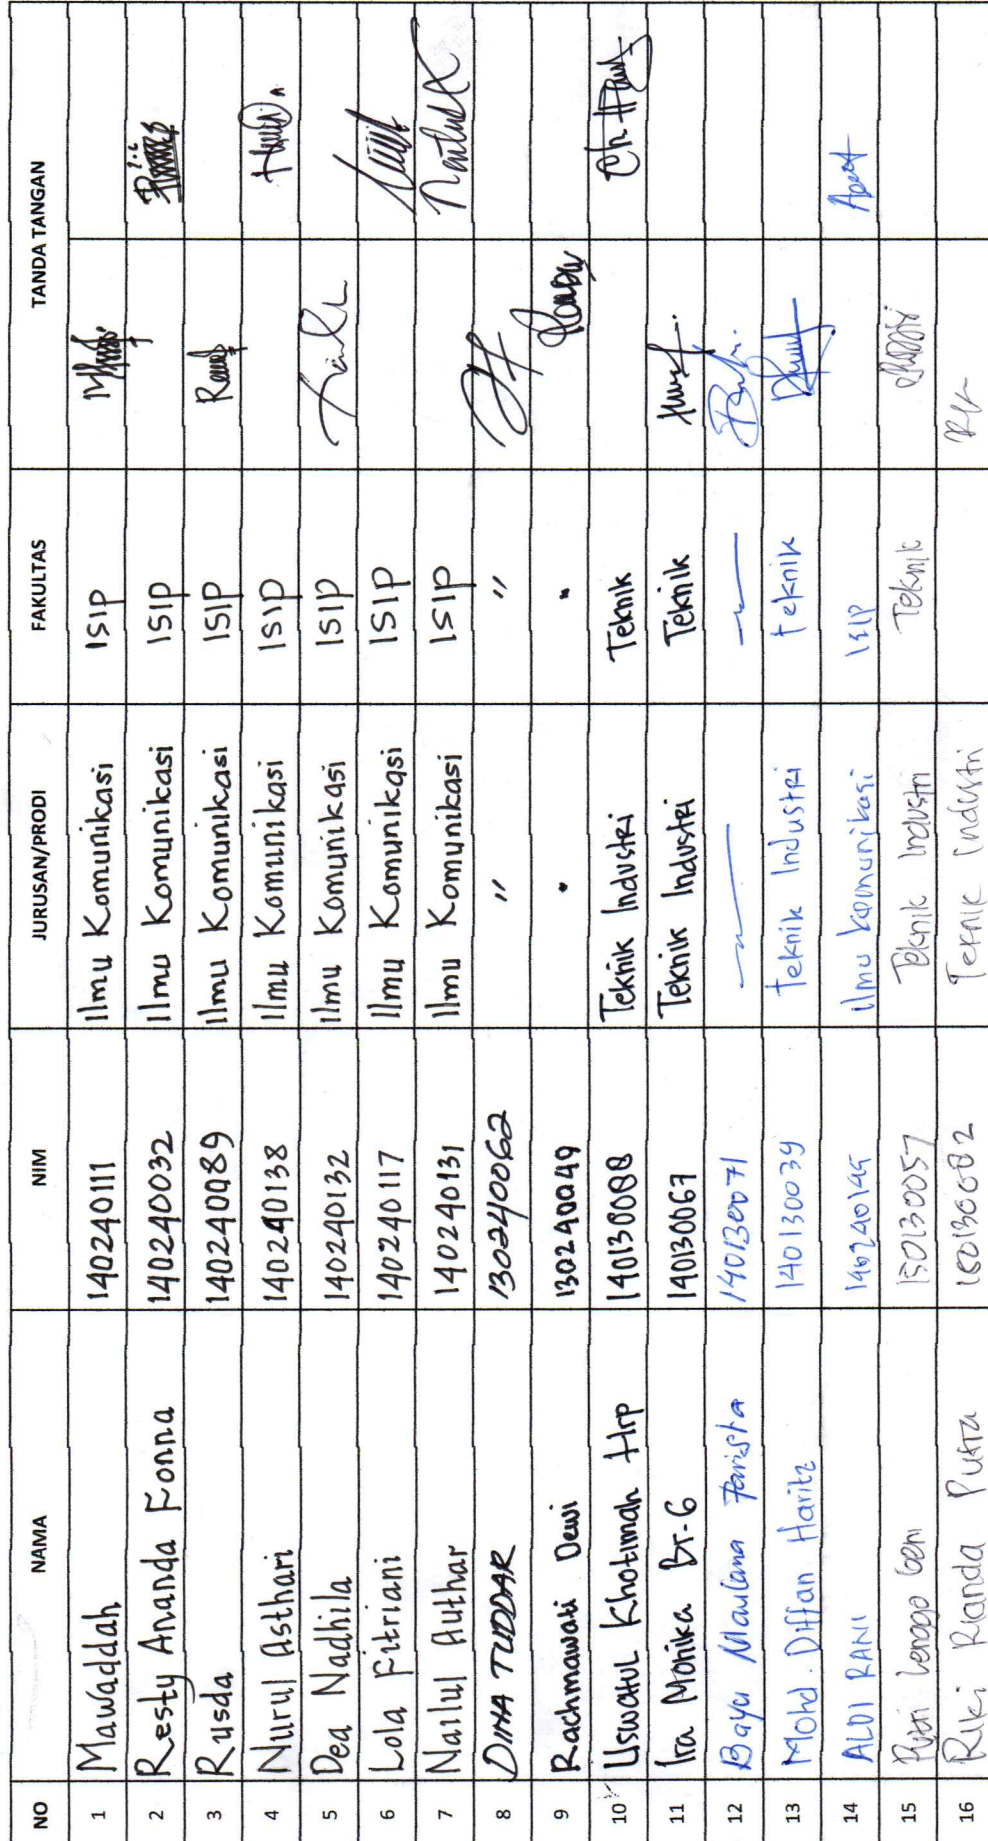 NO NAMA NIM JURUSAN/PRODI FAKULTAS TANDA TANGAN
1 Mawaddah 140240111 Ilmu Komunikasi ISIP
2 Resty Ananda Fonna 140240032 Ilmu Komunikasi ISIP
3 Rusda 140240089 Ilmu Komunikasi ISIP
4 Nurul Asthari 140240138 Ilmu Komunikasi ISIP
5 Dea Nadhila 140240132 Ilmu Komunikasi ISIP
6 Lola Fitriani 140240117 Ilmu Komunikasi ISIP
7 Nailul Authar 140240131 Ilmu Komunikasi ISIP
8 DINA TUDDAR 130240062 " "
9 Rachmawati Dewi 130240049 " "
10 Uswatul Khotimah Hrp 140130088 Teknik Industri Teknik
11 Ira Monika Br-G 140130067 Teknik Industri Teknik
12 Bayu Maulana 140130071
13 Mohd. Diffan Haritz 140130039 Teknik Industri teknik
14 ALDI RANI Ilmu komunikasi ISIP
15 Putri Lenggo Geni 150130057 Teknik Industri Teknik
16 Riki Rianda Putra Teknik Industri